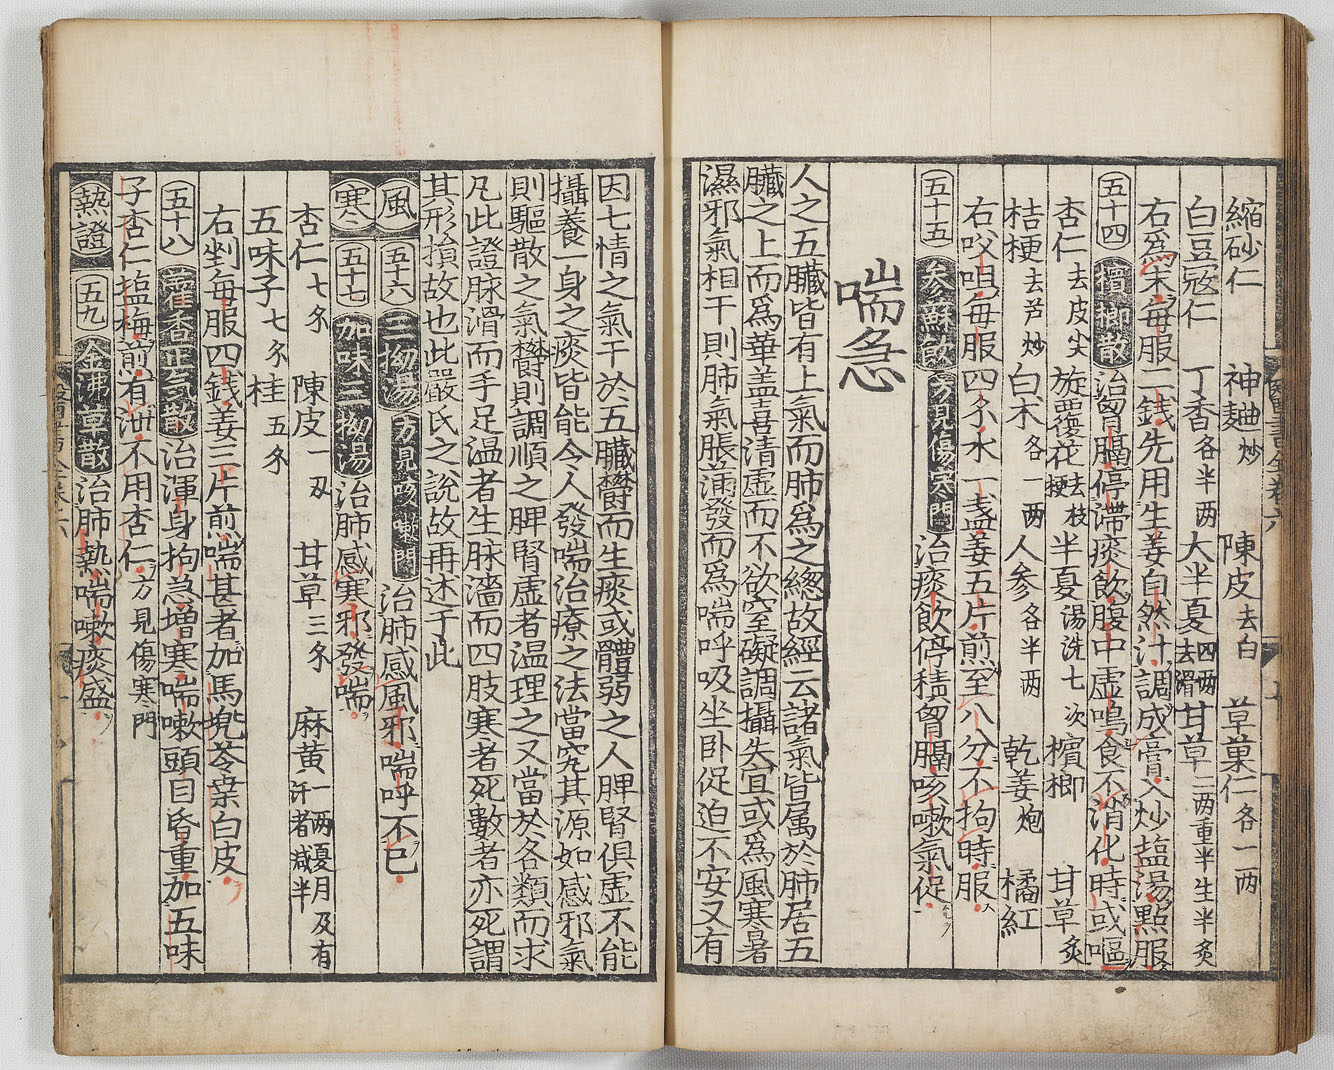 縮砂仁 神麯炒 陳皮去白 草菓仁各一两
白豆宼仁 丁香各半两 大半夏四两去滑 甘草二两重半生半炙
右為末每服二錢先用生姜自然汁調成膏入炒塩湯點服
五十四 檳榔散 治胷膈停滯痰飲腹中虛鳴食不消化時或嘔
杏仁去皮尖 旋覆花去枝梗 半夏湯洗七次 檳榔 甘草炙
桔梗去芦炒 白术各一两 人参各半两 乾姜炮 橘紅
右㕮咀每服四錢水一盞姜五片煎至八分不拘時服
五十五 参蘇飲 方見傷寒門 治痰飲停積胷膈咳嗽氣促
喘急
人之五臟皆有上氣而肺為之緫故經云諸氣皆属於肺居五
臟之上而為華盖喜清虛而不欲窒礙調攝失宜或為風寒暑
濕邪氣相干則肺氣脹滿發而為喘呼吸坐卧促迫不安又有
因七情之氣干於五臟欝而生痰或體弱之人脾腎俱虛不能
攝養一身之痰皆能令人發喘治療之法當究其源如感邪氣
則驅散之氣欝則調順之脾腎虛者温理之又當於各類而求
凡此證脉滑而手足温者生脉濇而四肢寒者死數者亦死謂
其形損故也此嚴氏之說故再述于此
風 五十六 三拗湯 方見咳嗽門 治肺感風邪喘呼不已
寒 五十七 加味三拗湯 治肺感寒邪發喘
杏仁七錢 陳皮一两 甘草三錢 麻黄一两夏月及有汗者減半
五味子七錢 桂五錢
右剉每服四錢姜三片煎喘甚者加馬兠苓桒白皮
五十八 藿香正気散 治渾身拘急增寒喘嗽頭目昏重加五味
子杏仁塩梅煎有泄不用杏仁方見傷寒門
熱證 五九 金沸草散 治肺熱喘嗽痰盛